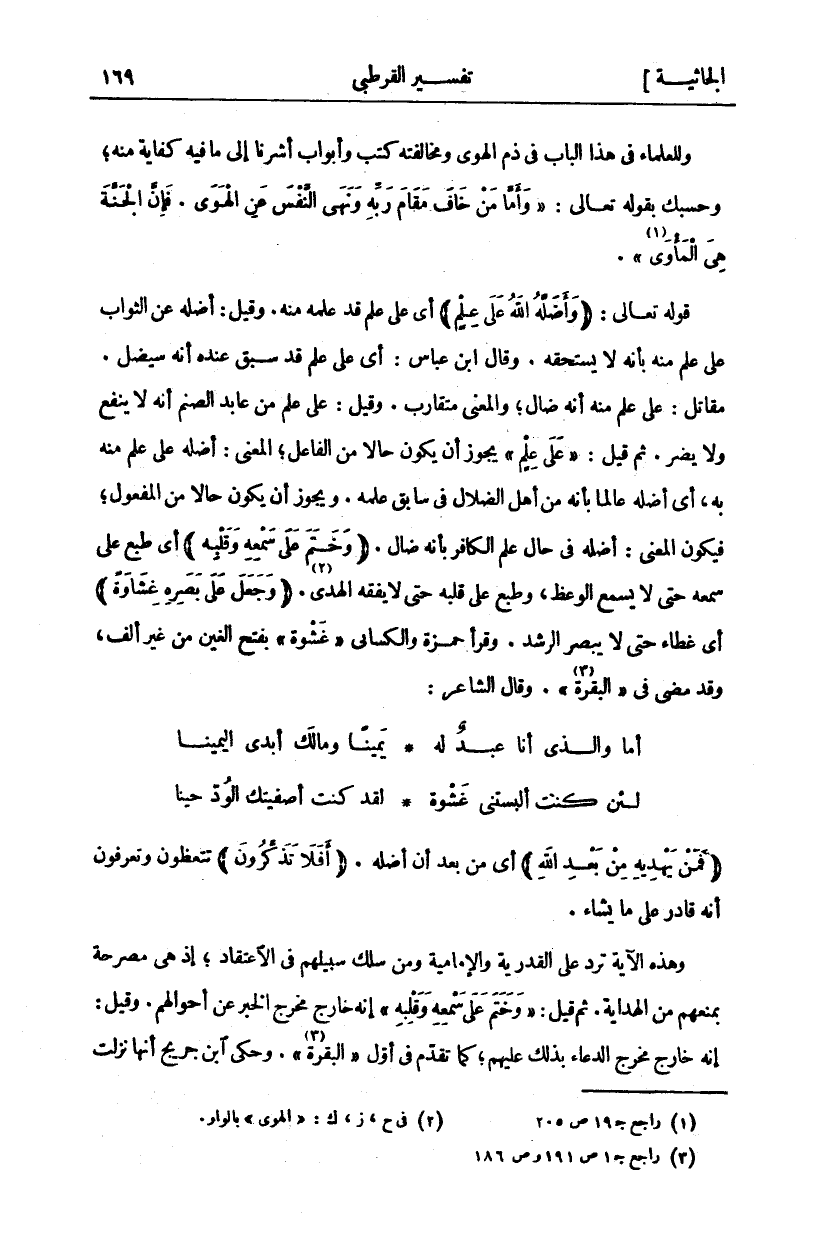 الجاثيـة ] تفسـير القرطبى ١٦٩
وللعلماء فى هذا الباب فى ذم الهوى ومخالفته كتب وأبواب أشرنا إلى ما فيه كفاية منه؛
وحسبك بقوله تعـالى : « وَأَمَّا مَنْ خَافَ مَقَامَ رَبِّهِ وَنَهَى النَّفْسَ عَنِ الْهَوَى . فَإِنَّ الْجَنَّةَ
هِىَ الْمَأْوَى » (١) .
قوله تعـالى : ﴿ وَأَضَلَّهُ اللهُ عَلَى عِلْمٍ ﴾ أى على علم قد علمه منه. وقيل: أضله عن الثواب
على علم منه بأنه لا يستحقه . وقال ابن عباس : أى على علم قد سـبق عنده أنه سيضل .
مقاتل : على علم منه أنه ضال؛ والمعنى متقارب . وقيل : على علم من عابد الصنم أنه لا ينفع
ولا يضر . ثم قيل : « عَلَى عِلْمٍ » يجوز أن يكون حالا من الفاعل؛ المعنى : أضله على علم منه
به، أى أضله عالما بأنه من أهل الضلال فى سابق علمه . ويجوز أن يكون حالا من المفعول؛
فيكون المعنى : أضله فى حال علم الكافر بأنه ضال . ﴿ وَخَـتَمَ عَلَى سَمْعِهِ وَقَلْبِـهِ ﴾ أى طبع على
سمعه حتى لا يسمع الوعظ، وطبع على قلبه حتى لا يفقه الهدى (٢). ﴿ وَجَعَلَ عَلَى بَصَرِهِ غِشَاوَةً ﴾
أى غطاء حتى لا يبصر الرشد . وقرأ حمـزة والكسائى « غَشْوة » بفتح الغين من غير ألف،
وقد مضى فى « البقرة » (٣) . وقال الشاعر :
أما والـــذى أنا عبــدٌ له * يَمِينًـا ومالَك أبدى اليمينــا
لـئن كنت ألبستنى غَشْوة * لقد كنت أصفيتك الوُدّ حينا
﴿ فَمَنْ يَهْدِيهِ مِنْ بَعْـدِ اللهِ ﴾ أى من بعد أن أضله . ﴿ أَفَلَا تَذَكَّرُونَ ﴾ تتعظون وتعرفون
أنه قادر على ما يشاء .
وهذه الآية ترد على القدرية والإمامية ومن سلك سبيلهم فى الآعتقاد ؛ إذ هى مصرحة
بمنعهم من الهداية. ثم قيل: « وَخَتَمَ عَلَى سَمْعِهِ وَقَلْبِهِ » إنه خارج مخرج الخبر عن أحوالهم. وقيل:
إنه خارج مخرج الدعاء بذلك عليهم؛ كما تقدّم فى أوّل « البقرة » (٣). وحكى آبن جريج أنها نزلت
(١) راجع جـ١٩ ص ٢٠٥ (٢) فى ح ، ز ، ك : « الهوى » بالواو.
(٣) راجع جـ١ ص ١٩١ و ص ١٨٦